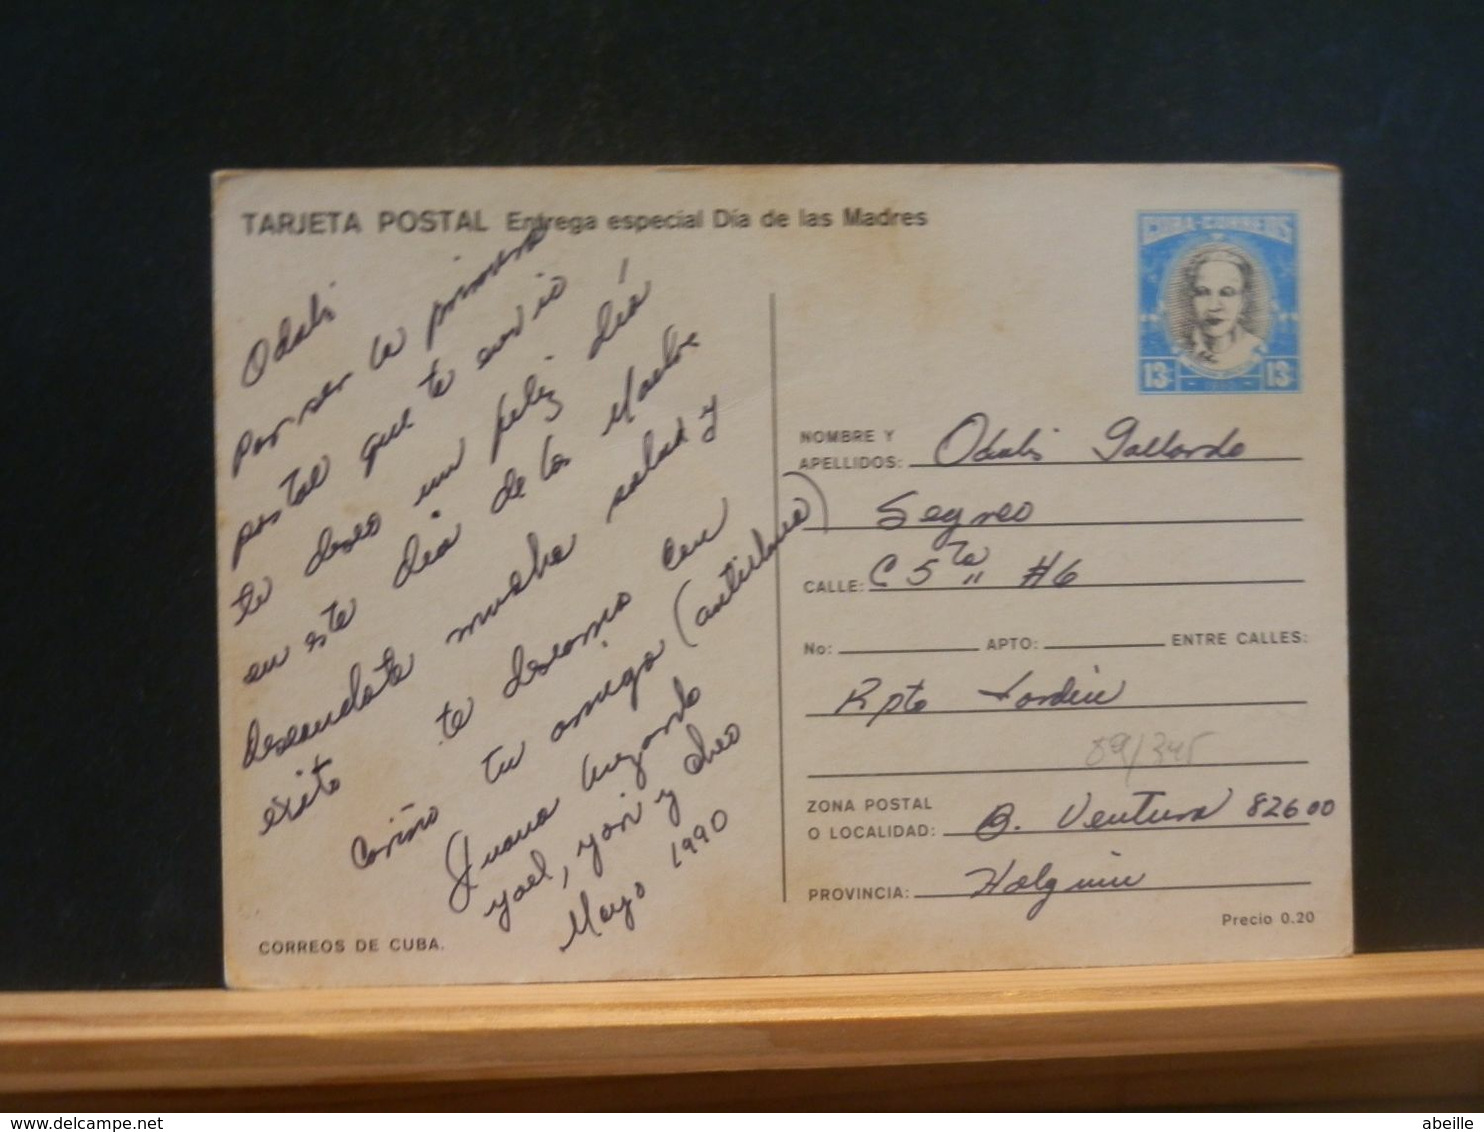 TARJETA POSTAL Entrega especial Día de las Madres
Odalis
por ser la primera
postal que te envio
te deseo un feliz día
en este día de las Madre
deseandote mucha salud y
exito te deseamos con
Cariño tu amiga (antillana)
Juana
yael, yori y cheo
Mayo 1990
CORREOS DE CUBA.
CUBA·CORREOS
13¢ 13¢
NOMBRE Y
APELLIDOS: Odalis Gallardo
Segreo
CALLE: C 5ta #6
No: APTO: ENTRE CALLES:
Rpto Jordin
59/345
ZONA POSTAL
O LOCALIDAD: B. Ventura 82600
PROVINCIA: Holguin
Precio 0.20
abeille